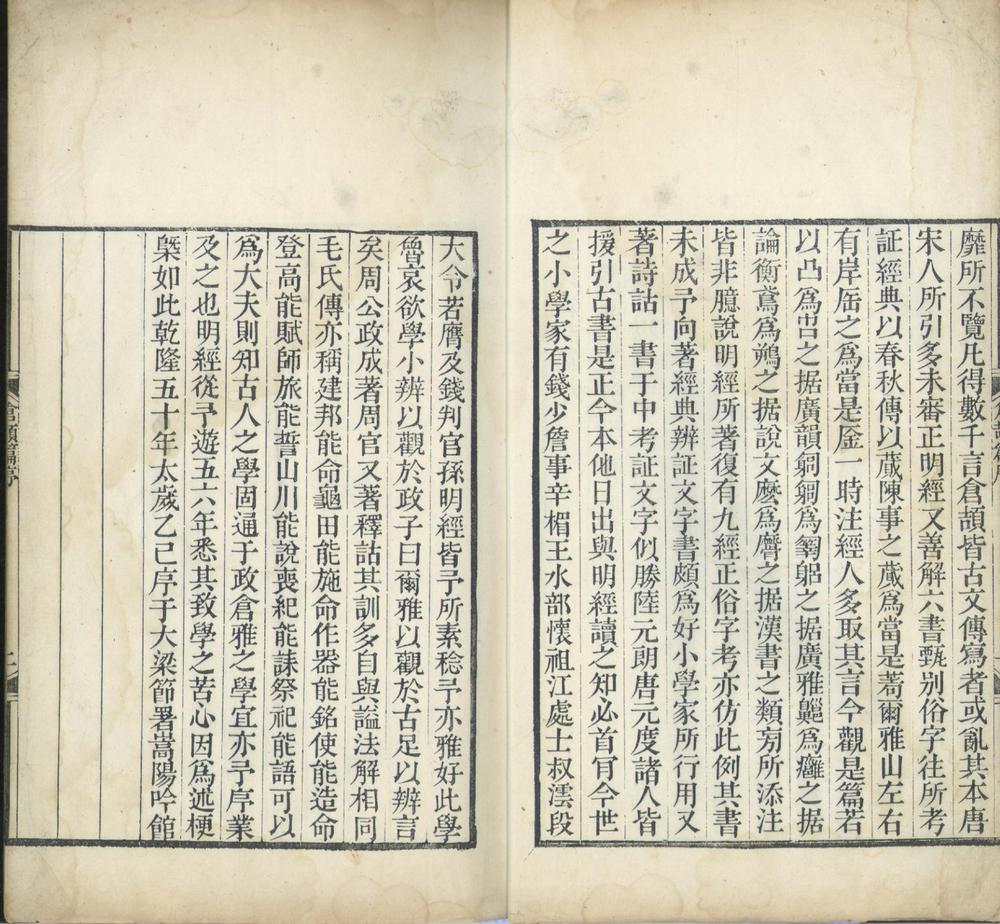 靡所不覽凡得數千言倉頡皆古文傳寫者或亂其本唐
宋人所引多未審正明經又善解六書甄别俗字往所考
証經典以春秋傳以蕆陳事之蕆爲當是蕎爾雅山左右
有岸厒之爲當是厒一時注經人多取其言今觀是篇若
以凸爲之据廣韻匑匑爲匔躳之据廣雅爲癰之据
論衡鳶爲鴻之据說文麽爲之据漢書之類㫄所添注
皆非臆說明經所著復有九經正俗字考亦仿此例其書
未成予向著經典辨証文字書頗爲好小學家所行用又
著詩詁一書于中考証文字似勝陸元朗唐元度諸人皆
援引古書是正今本他日出與明經讀之知必首肎今世
之小學家有錢少詹事辛楣王水部懷祖江處士叔澐段
大令若膺及錢判官孫明經皆予所素稔予亦雅好此學
魯哀欲學小辨以觀於政子曰爾雅以觀於古足以辨言
矣周公政成著周官又著釋詁其訓多自與謚法解相同
毛氏傳亦稱建邦能命龜田能施命作器能銘使能造命
登高能賦師旅能誓山川能說喪紀能誄祭祀能語可以
爲大夫則知古人之學固通于政倉雅之學宜亦予序業
及之也明經從予遊五六年悉其致學之苦心因爲述梗
槩如此乾隆五十年太歲乙已序于大梁節署嵩陽吟館
倉頡篇序
二